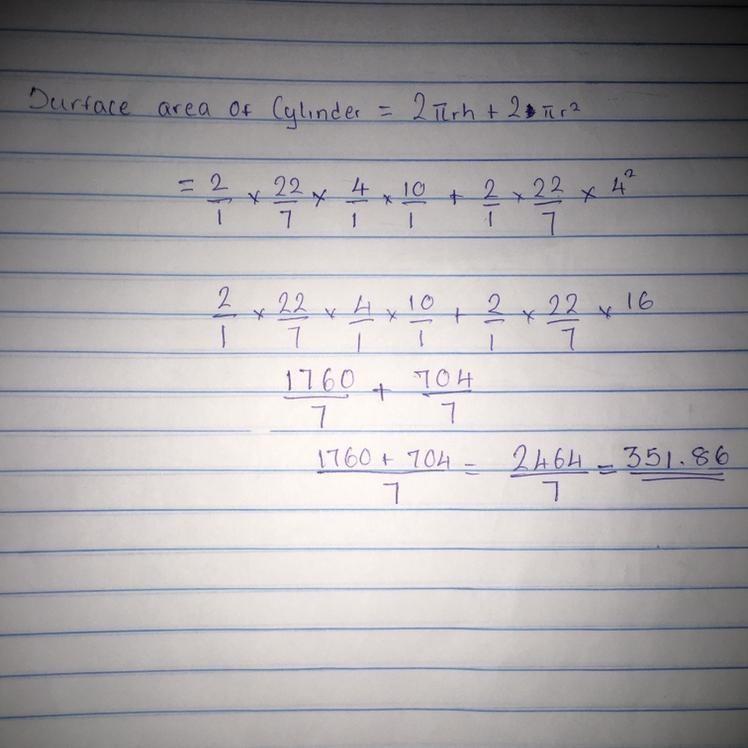 Surface area of Cylinder = 2πrh + 2πr²
= 2/1 × 22/7 × 4/1 × 10/1 + 2/1 × 22/7 × 4²
2/1 × 22/7 × 4/1 × 10/1 + 2/1 × 22/7 × 16
1760/7 + 704/7
1760 + 704/7 = 2464/7 = 351.86